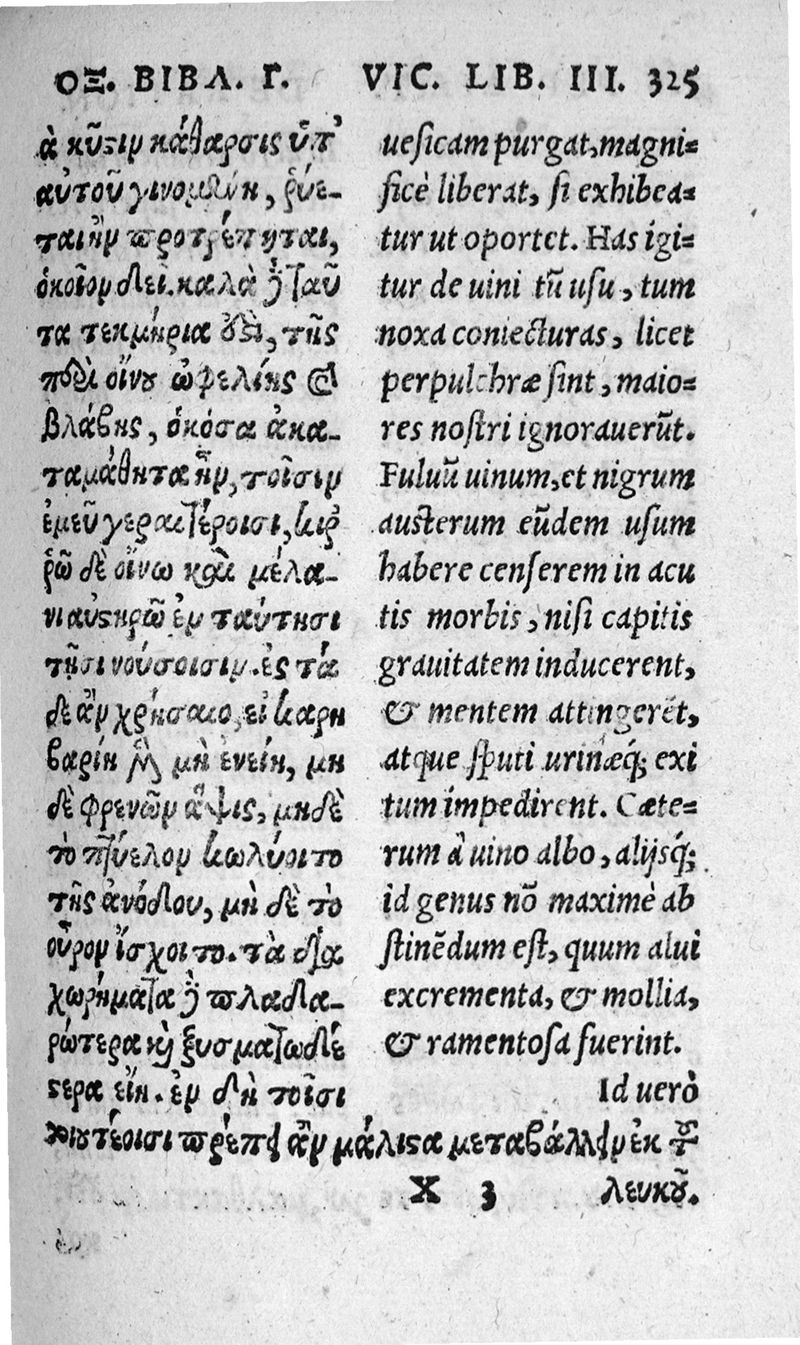 ΟΞ. ΒΙΒΛ. Γ. VIC. LIB. III. 325
ὰ κύστιν κάθαρσις ὑπ'
αὐτοῦ γινομένη, ῥύε-
ται ἢν προτρέπηται,
ὁκοῖον δεῖ. καλὰ ταῦ
τα τεκμήρια τῆς
περὶ οἴνου ὠφελίης καὶ
βλάβης, ὁκόσα ἀκα-
ταμάθητα ἦν, τοῖσιν
ἐμεῦ γεραιτέροισι, κιρ
ρῶ δὲ οἴνω καὶ μέλα-
νι αὐστηρῶ ἐν ταύτησι
τῆσι νούσοισιν. ἐς τά
δε ἂν χρήσαιο, εἰ καρη
βαρίη μὲν μὴ ἐνείη, μη
δὲ φρενῶν ἄψις, μηδὲ
τὸ πτύελον κωλύοιτο
τῆς ἀνόδου, μὴ δὲ τὸ
οὖρον ἴσχοιτο. τὰ δια
χωρήματα πλαδα-
ρώτερα καὶ ξυσματωδέ
στερα εἴη. ἐν δὴ τοῖσι
τουτέοισι πρέπει ἂν μάλιστα μεταβάλλειν ἐκ τοῦ
λευκοῦ.
uesicam purgat, magni=
ficè liberat, si exhibea=
tur ut oportet. Has igi=
tur de uini tũ usu, tum
noxa coniecturas, licet
perpulchræ sint, maio=
res nostri ignorauerũt.
Fuluũ uinum, et nigrum
austerum eũdem usum
habere censerem in acu
tis morbis, nisi capitis
grauitatem inducerent,
& mentem attingerẽt,
atque sputi urinæq́; exi
tum impedirent. Cæte=
rum à uino albo, alijsq́;
id genus nõ maximè ab
stinẽdum est, quum alui
excrementa, & mollia,
& ramentosa fuerint.
Id uerò
X 3